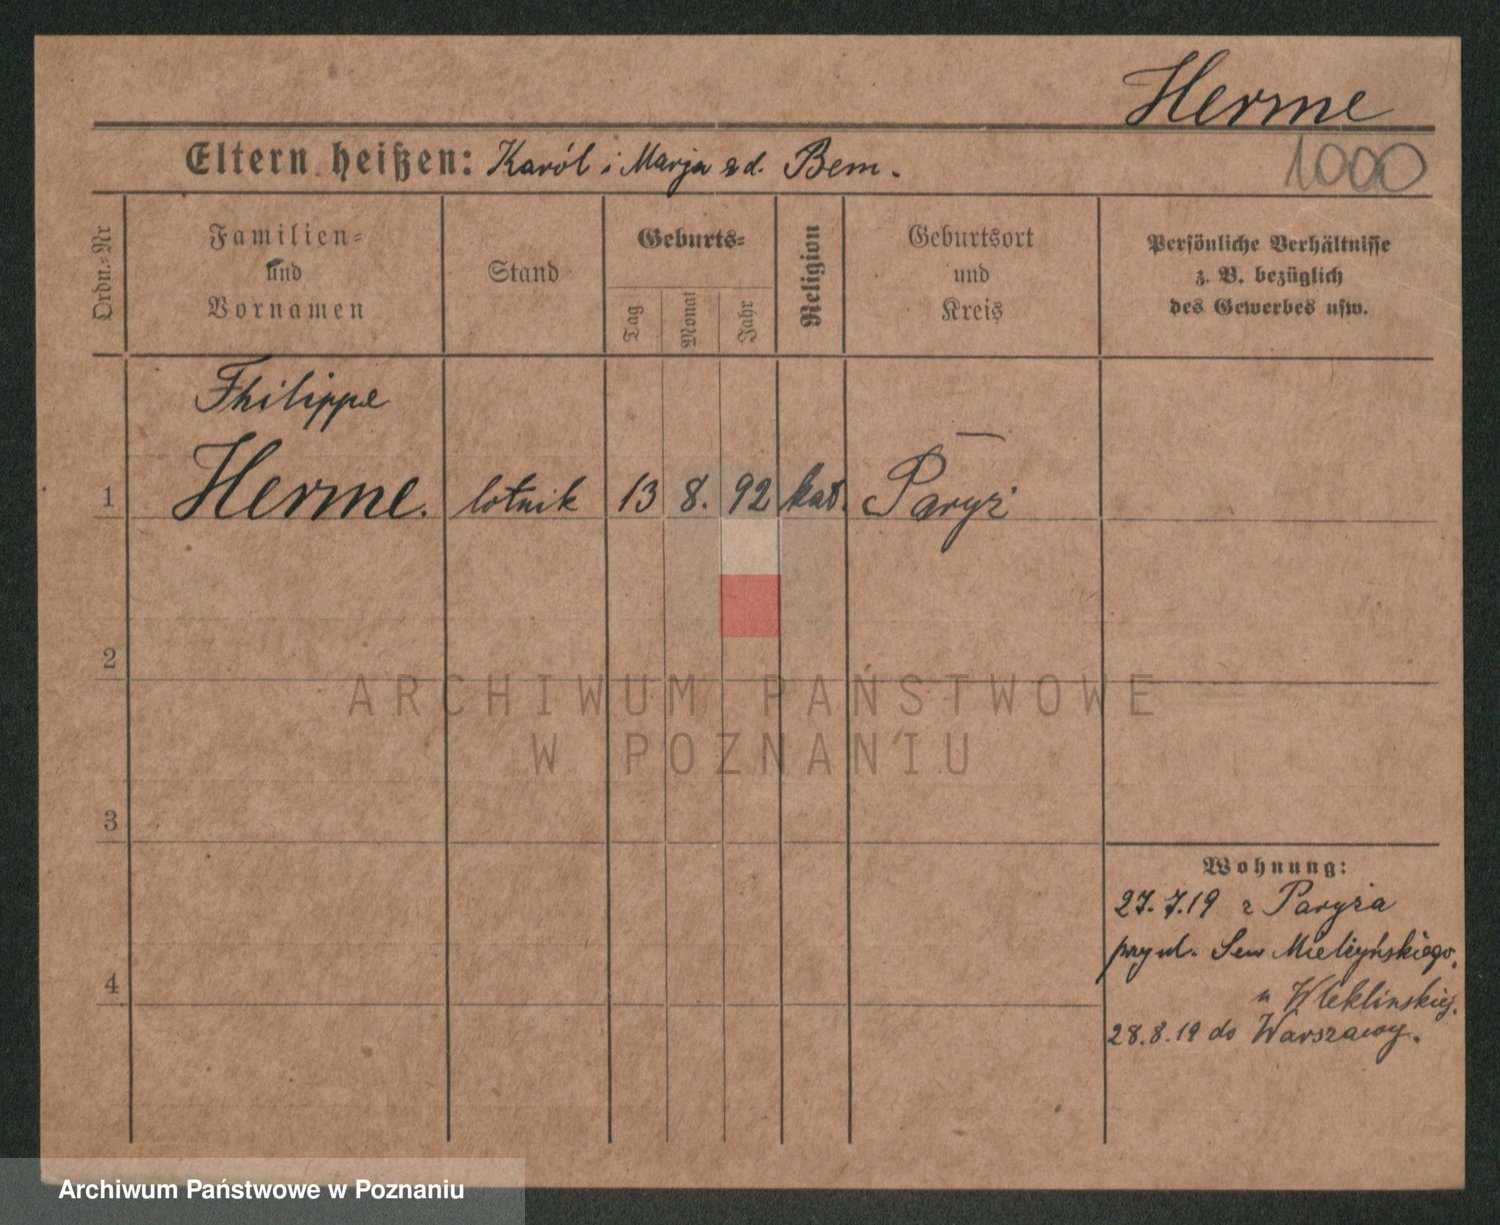 Herme
Eltern heißen: Karól i Marja zd. Bem.
1000
Ordn.-Nr
Familien-
und
Vornamen
Stand
Geburts-
Tag
Monat
Jahr
Religion
Geburtsort
und
Kreis
Persönliche Verhältnisse
z. B. bezüglich
des Gewerbes usw.
Philippe
1 Herme. lotnik 13 8. 92 kat. Paryż
2
ARCHIWUM PAŃSTWOWE
W POZNANIU
3
Wohnung:
27.7.19 z Paryża
przy ul. Sew Mielżyńskiego,
u Wleklinskiej.
4
28.8.19 do Warszawy.
Archiwum Państwowe w Poznaniu